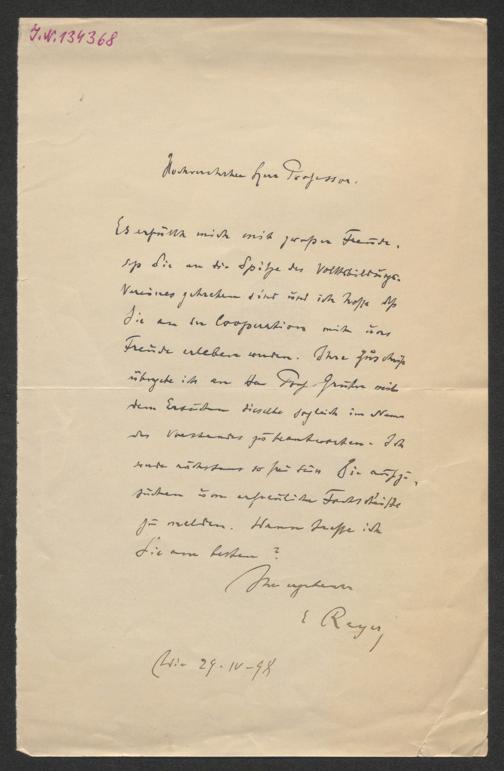 J.N. 134368
Hochverehrter Herr Professor.
Es erfüllt mich mit grosser Freude,
dass Sie an die Spitze des Volksbildungs-
Vereines getreten sind und ich hoffe dass
Sie an der Cooperation mit uns
Freude erleben werden. Ihre Zuschrift
übergebe ich an Hn Prof. Gruber mit
dem Ersuchen dieselbe sogleich im Namen
des Vorstandes zu beantworten. Ich
werde nächstens so frei sein Sie aufzu-
suchen um erfreuliche Fortschritte
zu melden. Wann treffe ich
Sie am besten?
Ihr ergebener
E Reyer
Wien 29-IV-98